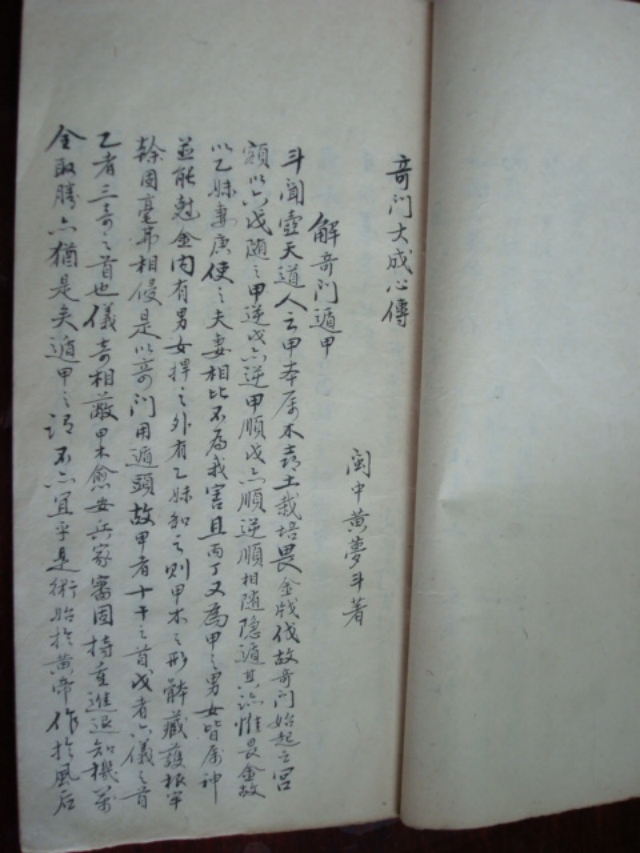 奇门大成心傳
闽中黄夢斗著
解奇门遁甲
斗闻壶天道人云甲本属木喜土栽培畏金戕伐故奇门始起之宫
额以六戊随之甲逆戊亦逆甲顺戊亦顺逆顺相随隐遁其迹惟畏金故
以乙妹妻庚使之夫妻相比不为我害且丙丁又為甲之男女皆属神
並能尅金内有男女捍之外有乙妹和之则甲木之形骵藏護根牢
榦固毫弗相侵是以奇门用遁頭故甲者十干之首戊者六儀之首
乙者三奇之首也儀奇相蔽甲木愈安兵家審固持重進退知機萬
全取勝亦猶是矣遁甲之 不亦宜乎是術始於黄帝作於風后